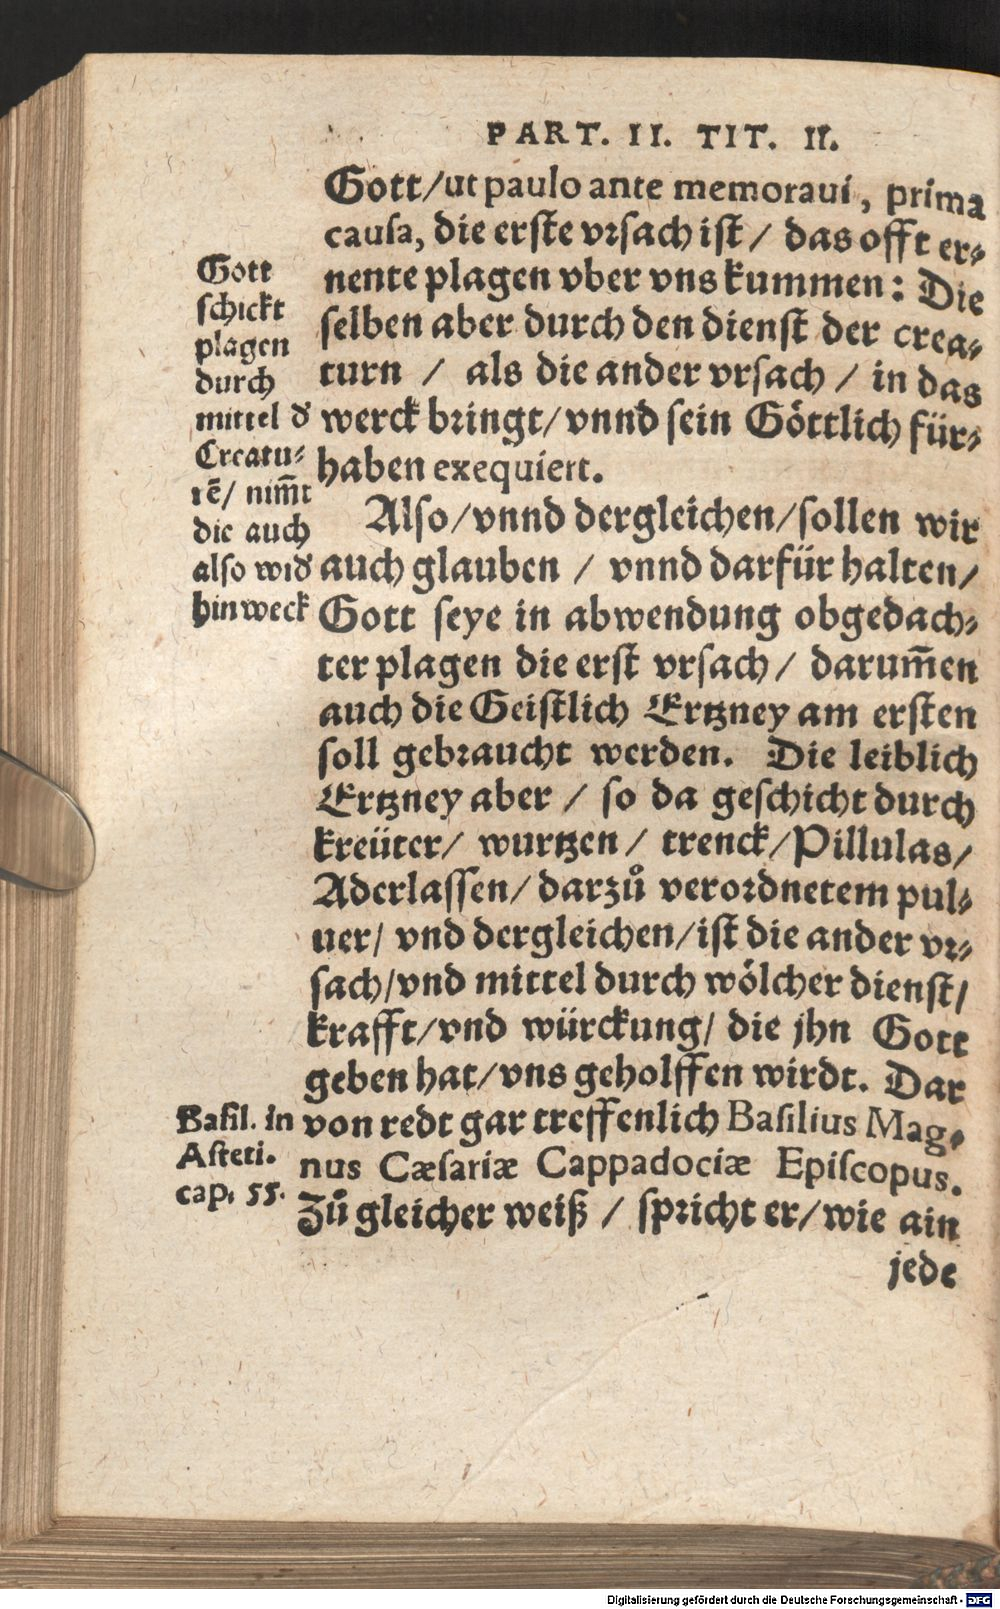 PART. II. TIT. II.
Gott/ut paulo ante memoraui, prima
causa, die erste vrsach ist / das offt er⸗
nente plagen vber vns kummen: Die
selben aber durch den dienst der crea⸗
turn / als die ander vrsach / in das
werck bringt/vnnd sein Göttlich für⸗
haben exequiert.
Gott
schickt
plagen
durch
mittel d'
Creatu⸗
rē/ nim̄t
die auch
also wid'
hinweck
Also/vnnd dergleichen/sollen wir
auch glauben / vnnd darfür halten/
Gott seye in abwendung obgedach⸗
ter plagen die erst vrsach / darum̄en
auch die Geistlich Ertzney am ersten
soll gebraucht werden. Die leiblich
Ertzney aber / so da geschicht durch
kreüter/ wurtzen / trenck/Pillulas/
Aderlassen/ darzů verordnetem pul⸗
uer/ vnd dergleichen/ist die ander vr⸗
sach/vnd mittel durch wölcher dienst/
krafft/vnd würckung/ die jhn Gott
geben hat/vns geholffen wirdt. Dar
von redt gar treffenlich Basilius Mag⸗
nus Cæsariæ Cappadociæ Episcopus.
Zů gleicher weiß / spricht er/wie ain
Basil. in
Asteti.
cap. 55.
jede
Digitalisierung gefördert durch die Deutsche Forschungsgemeinschaft - DFG